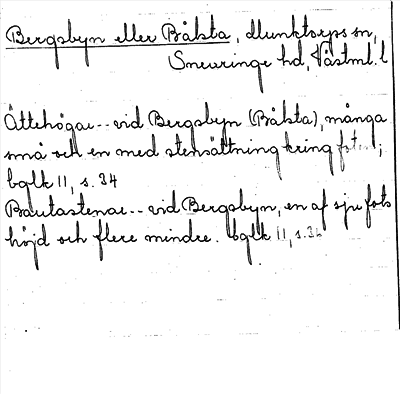 Bergsbyn eller Båksta, Munktorps sn,
Snevringe hd, Västml. l
Ättehögar -- vid Bergsbyn (Båksta), många
små och en med stensättning kring foten;
bglk 11, s. 34
Bautastenar -- vid Bergsbyn, en af sju fots
höjd och flere mindre. bglk 11, s.